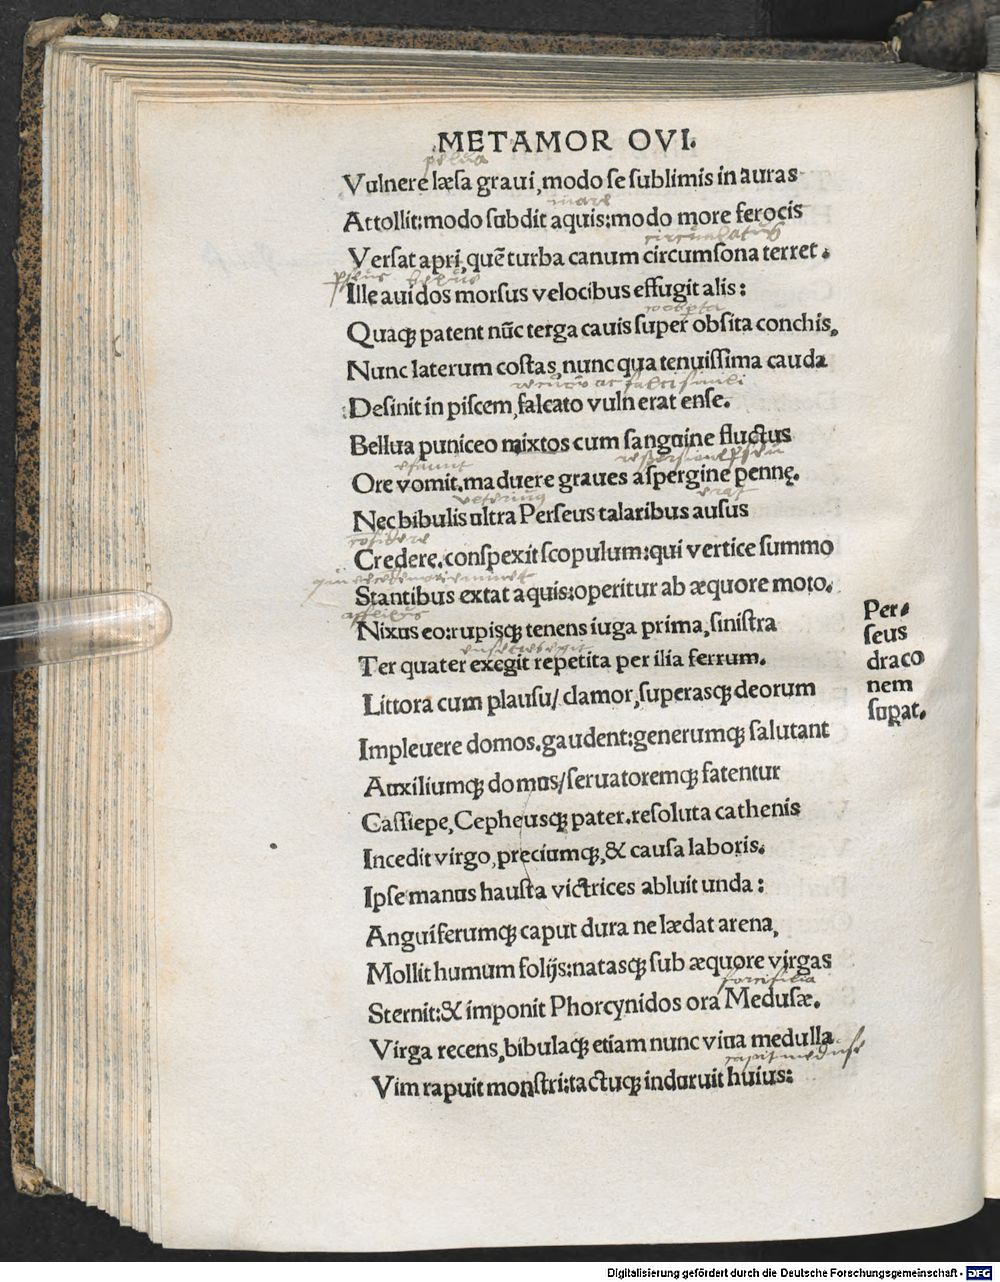 METAMOR OVI.
Vulnere læsa graui, modo se sublimis in auras
mare
Attollit: modo subdit aquis: modo more ferocis
Versat apri, quē turba canum circumsona terret.
Ille auidos morsus velocibus effugit alis:
Quaqꝫ patent nūc terga cauis super obsita conchis,
Nunc laterum costas, nunc qua tenuissima cauda
Desinit in piscem, falcato vulnerat ense.
Bellua puniceo mixtos cum sanguine fluctus
Ore vomit. maduere graues aspergine pennę.
erat
Nec bibulis ultra Perseus talaribus ausus
Credere. conspexit scopulum: qui vertice summo
Stantibus extat aquis: operitur ab æquore moto.
Nixus eo: rupisqꝫ tenens iuga prima, sinistra
Ter quater exegit repetita per ilia ferrum.
Littora cum plausu/ clamor, superasqꝫ deorum
Impleuere domos. gaudent: generumqꝫ salutant
Auxiliumqꝫ domus/ seruatoremqꝫ fatentur
Cassiepe, Cepheusqꝫ pater. resoluta cathenis
Incedit virgo, preciumqꝫ, & causa laboris.
Ipse manus hausta victrices abluit unda:
Anguiferumqꝫ caput dura ne lædat arena,
Mollit humum folijs: natasqꝫ sub æquore virgas
Sternit: & imponit Phorcynidos ora Medusæ.
Virga recens, bibulaqꝫ etiam nunc viua medulla
Vim rapuit monstri: tactuqꝫ induruit huius:
Per-
seus
draco
nem
supat.
Digitalisierung gefördert durch die Deutsche Forschungsgemeinschaft - DFG